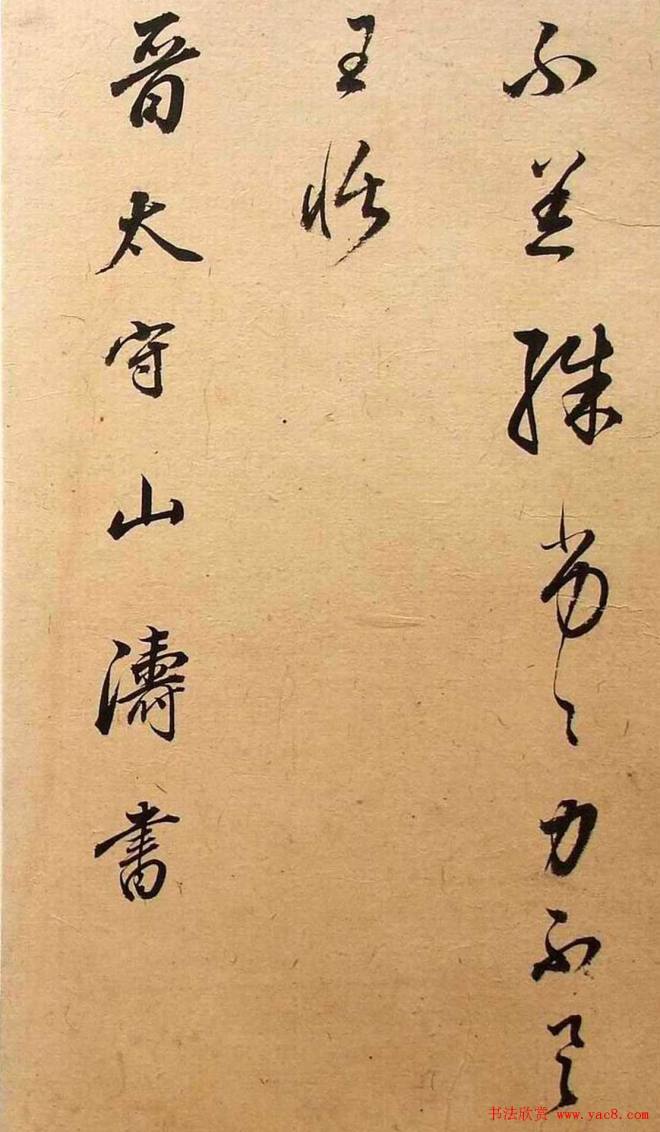 不差殊劣々力不具
王恬
晉太守山濤書
书法欣赏 www.yac8.com